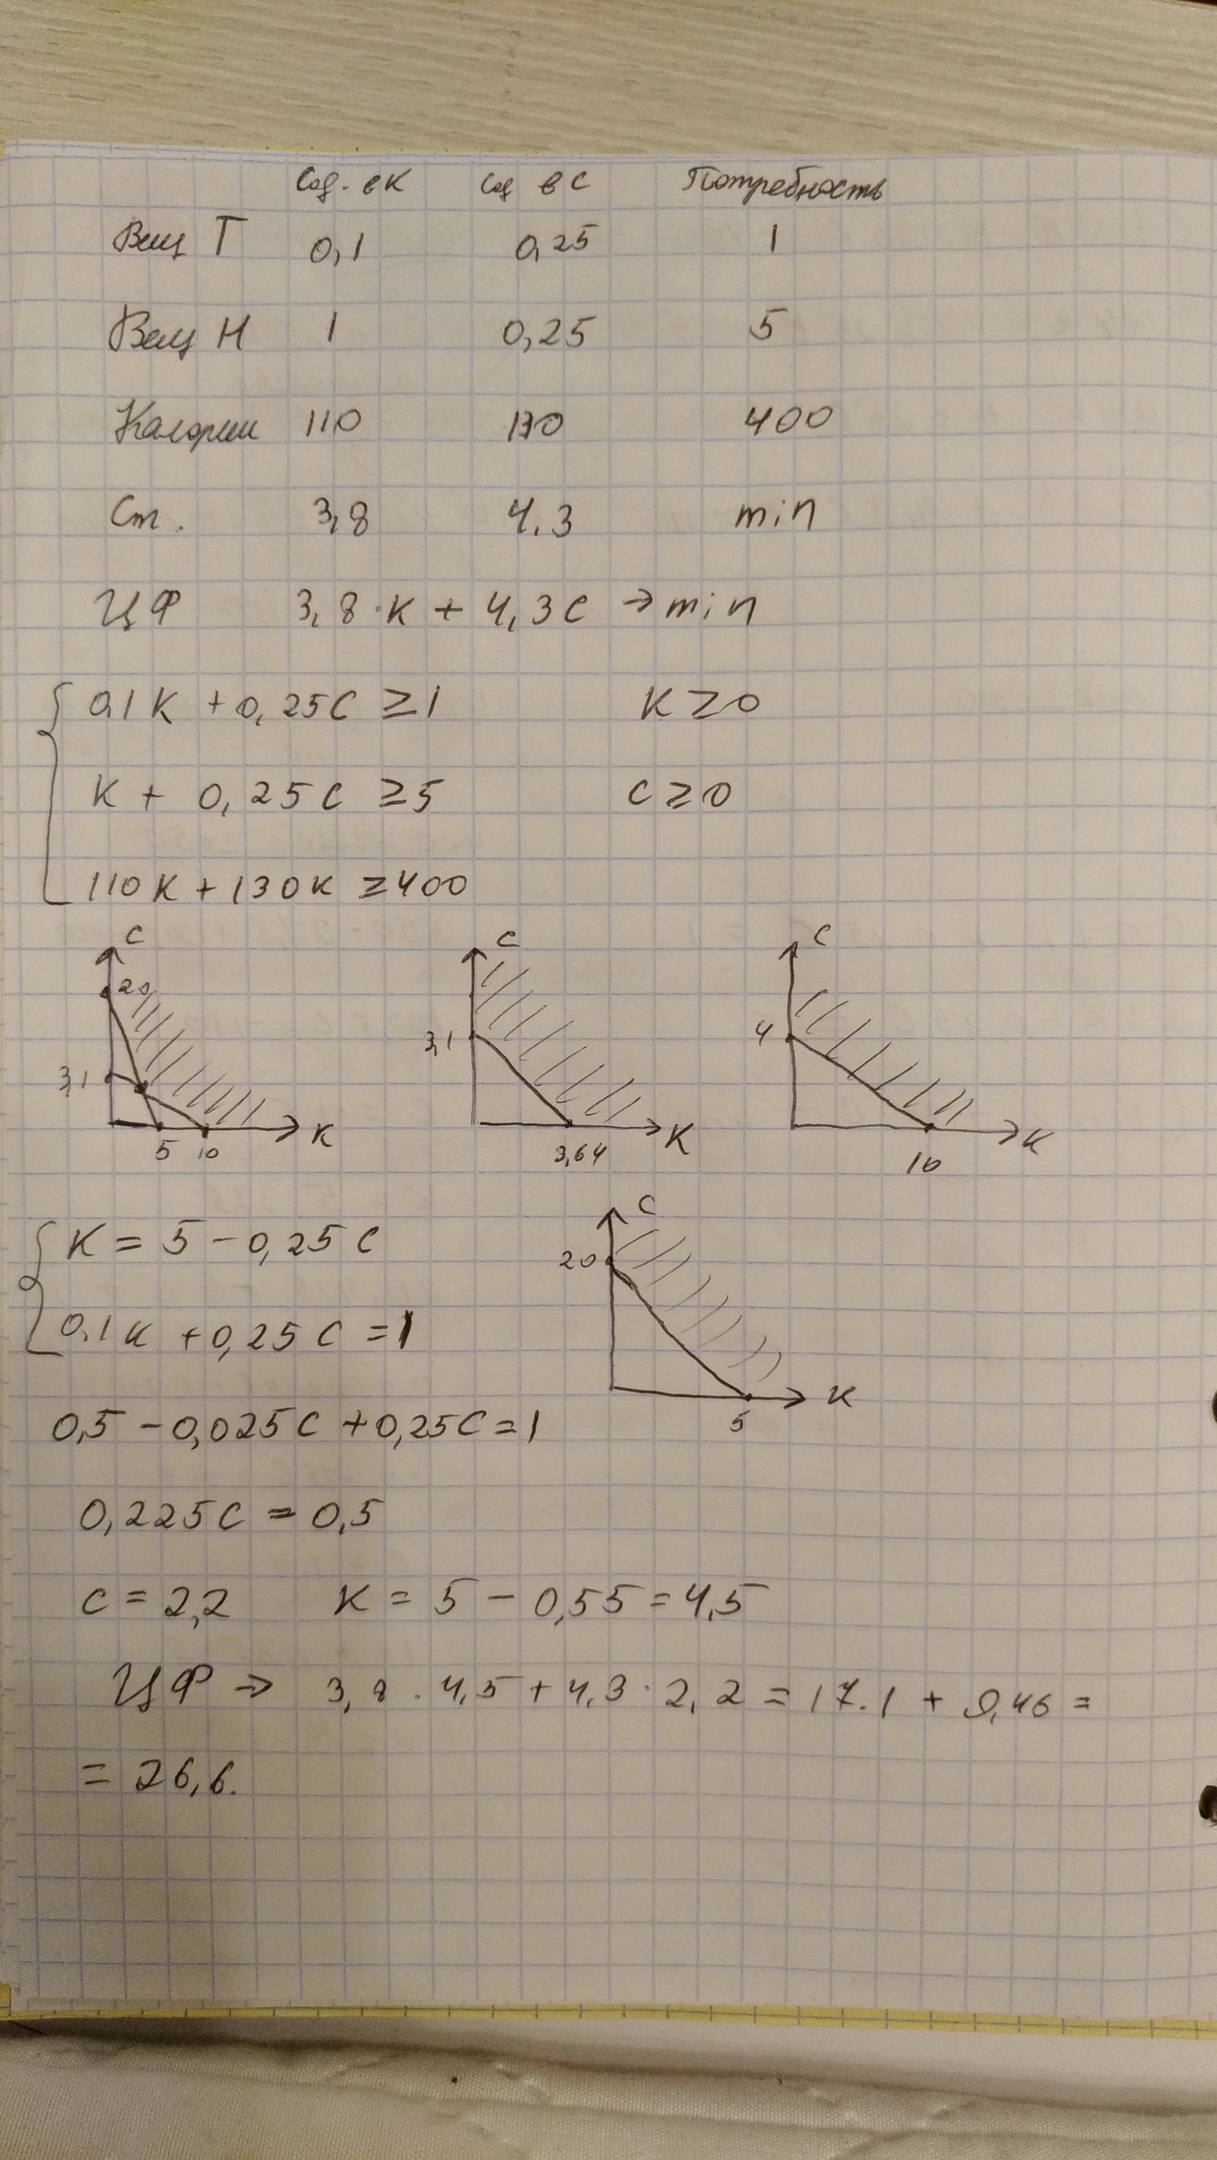 Сод. в К Сод в С Потребность
Вещ Т 0,1 0,25 1
Вещ Н 1 0,25 5
Калории 110 130 400
Ст. 3,8 4.3 min
ЦФ 3,8·К + 4,3С → min
0,1К + 0,25С ≥ 1 К ≥ 0
К + 0,25С ≥ 5 С ≥ 0
110К + 130К ≥ 400
С 20 3,1 5 10 К
С 3,1 3,64 К
С 4 10 К
К = 5 - 0,25С
0,1К + 0,25С = 1
С 20 5 К
0,5 - 0,025С + 0,25С = 1
0,225С = 0,5
С = 2,2 К = 5 - 0,55 = 4,5
ЦФ → 3,8 · 4,5 + 4,3 · 2,2 = 17.1 + 9,46 =
= 26,6.